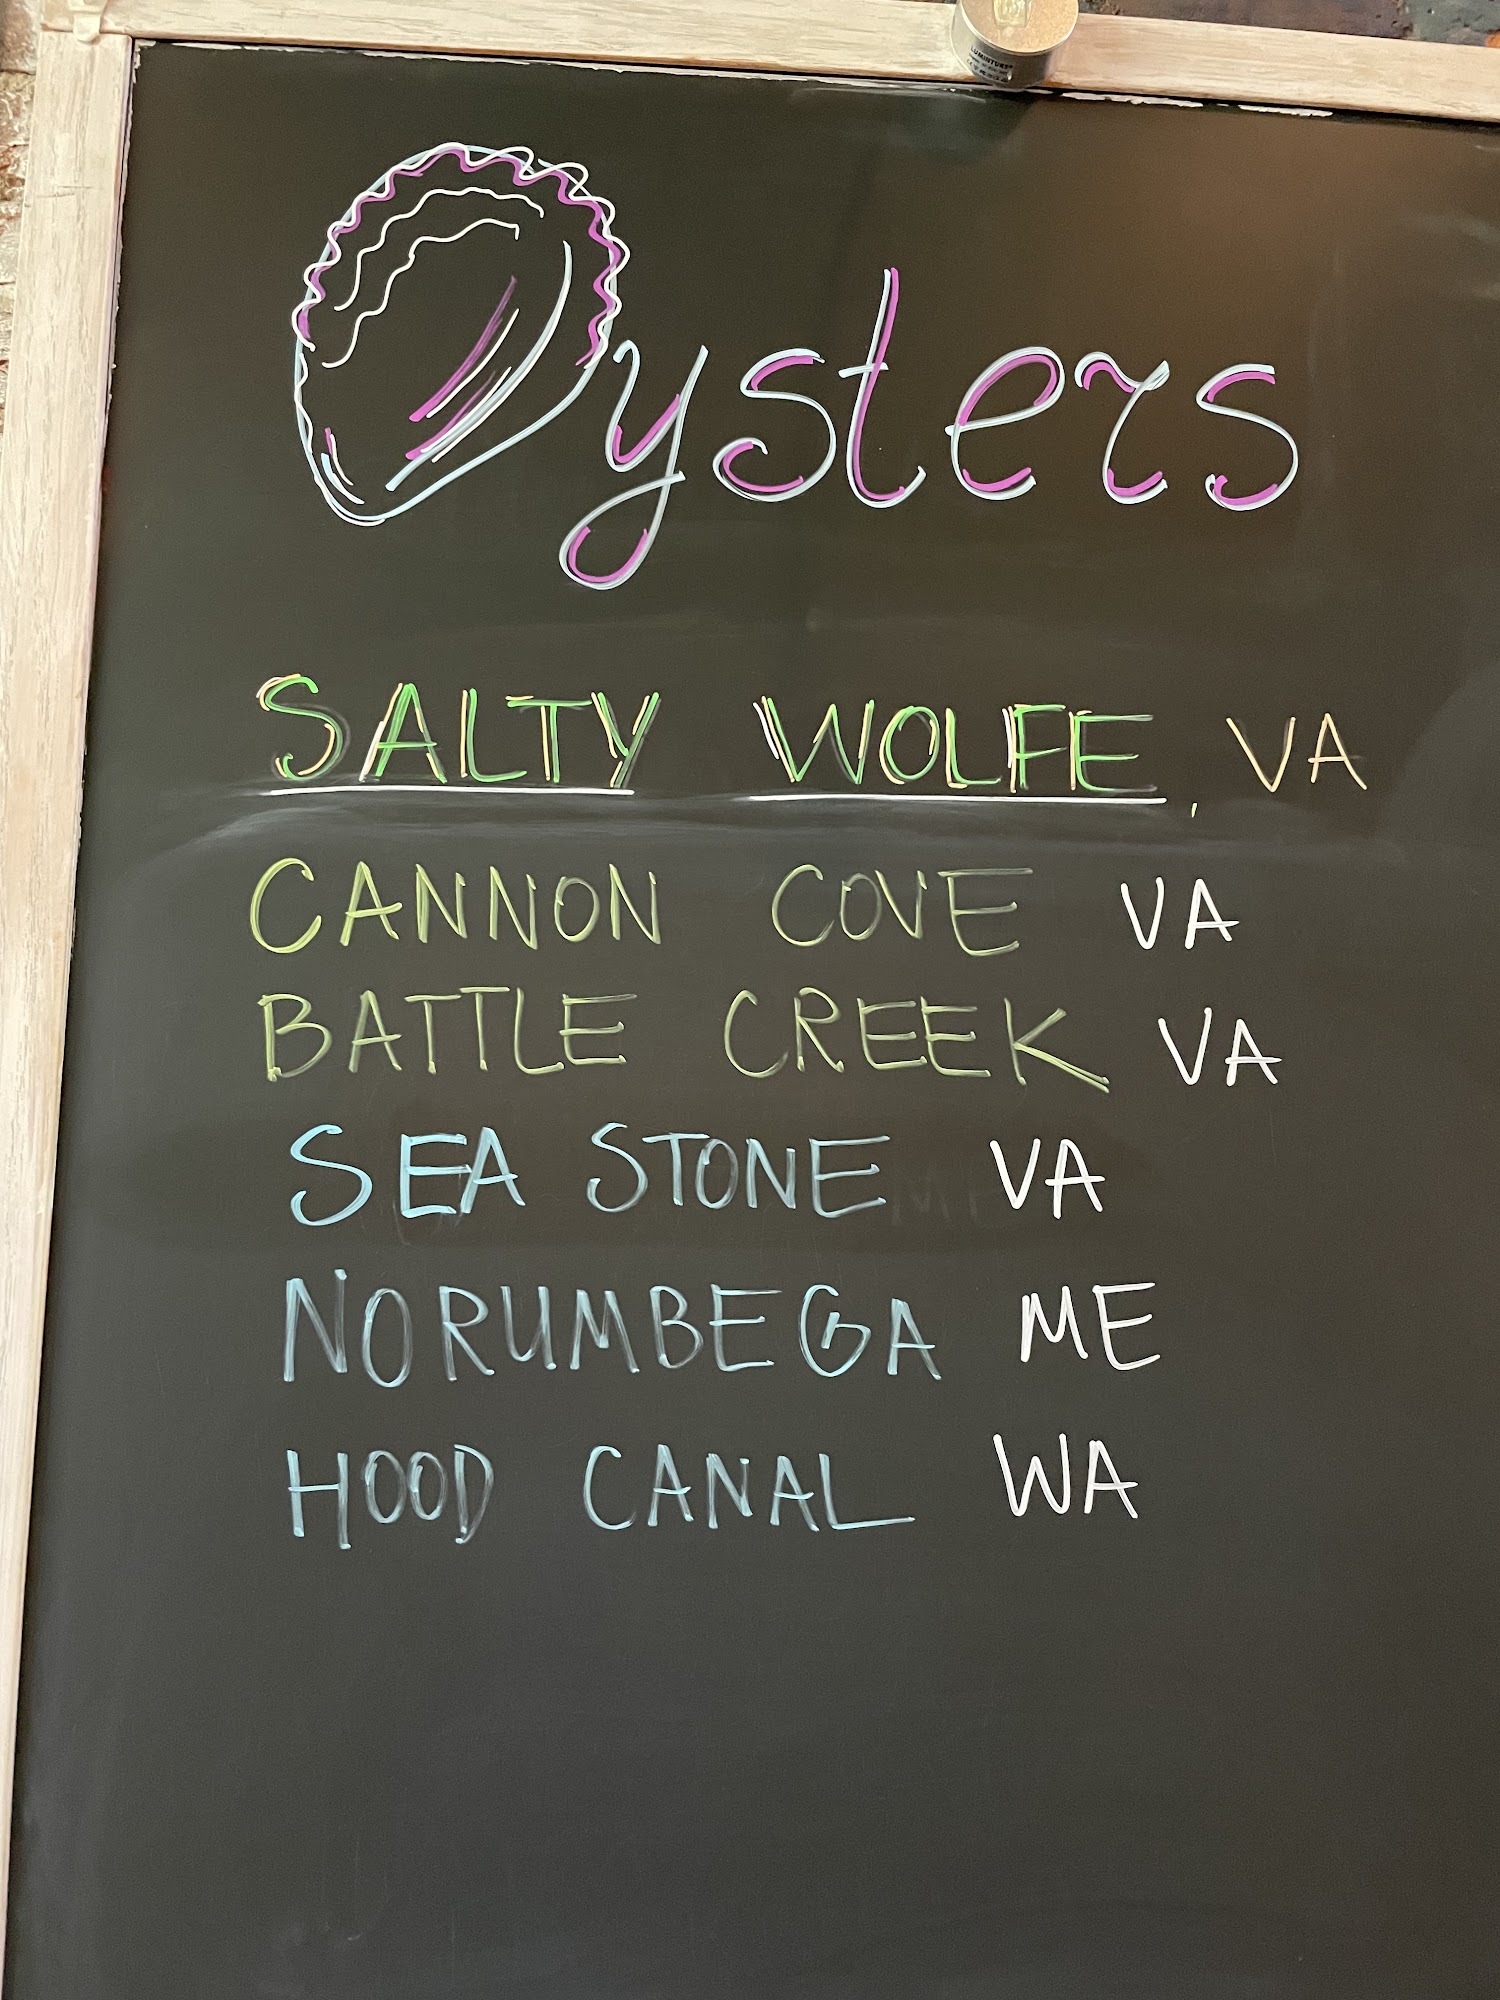 Oysters
SALTY WOLFE, VA
CANNON COVE VA
BATTLE CREEK VA
SEA STONE VA
NORUMBEGA ME
HOOD CANAL WA